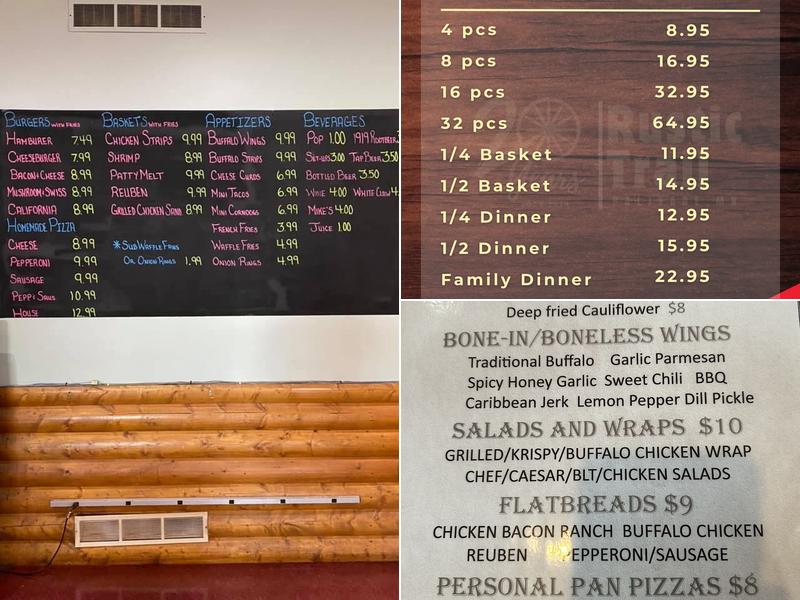 BURGERS WITH FRIES
HAMBURER 7.49
CHEESEBURGER 7.99
BACON & CHEESE 8.99
MUSHROOM & SWISS 8.99
CALIFORNIA 8.99
HOMEMADE PIZZA
CHEESE 8.99
PEPPERONI 9.99
SAUSAGE 9.99
PEPP & SAUS 10.99
HOUSE 12.99
BASKETS WITH FRIES
CHICKEN STRIPS 9.99
SHRIMP 8.99
PATTY MELT 9.99
REUBEN 9.99
GRILLED CHICKEN SAND 8.99
*SUB WAFFLE FRIES
OR ONION RINGS 1.99
APPETIZERS
BUFFALO WINGS 9.99
BUFFALO STRIPS 9.99
CHEESE CURDS 6.99
MINI TACOS 6.99
MINI CORNDOGS 6.99
FRENCH FRIES 3.99
WAFFLE FRIES 4.99
ONION RINGS 4.99
BEVERAGES
POP 1.00 1919 ROOTBEER
SET-UPS 3.00 TAP BEER 3.50
BOTTLED BEER 3.50
WINE 4.00 WHITE CLAW 4.
MIKE'S 4.00
JUICE 1.00
4 pcs 8.95
8 pcs 16.95
16 pcs 32.95
32 pcs 64.95
1/4 Basket 11.95
1/2 Basket 14.95
1/4 Dinner 12.95
1/2 Dinner 15.95
Family Dinner 22.95
Deep fried Cauliflower $8
BONE-IN/BONELESS WINGS
Traditional Buffalo Garlic Parmesan
Spicy Honey Garlic Sweet Chili BBQ
Caribbean Jerk Lemon Pepper Dill Pickle
SALADS AND WRAPS $10
GRILLED/KRISPY/BUFFALO CHICKEN WRAP
CHEF/CAESAR/BLT/CHICKEN SALADS
FLATBREADS $9
CHICKEN BACON RANCH BUFFALO CHICKEN
REUBEN PEPPERONI/SAUSAGE
PERSONAL PAN PIZZAS $8